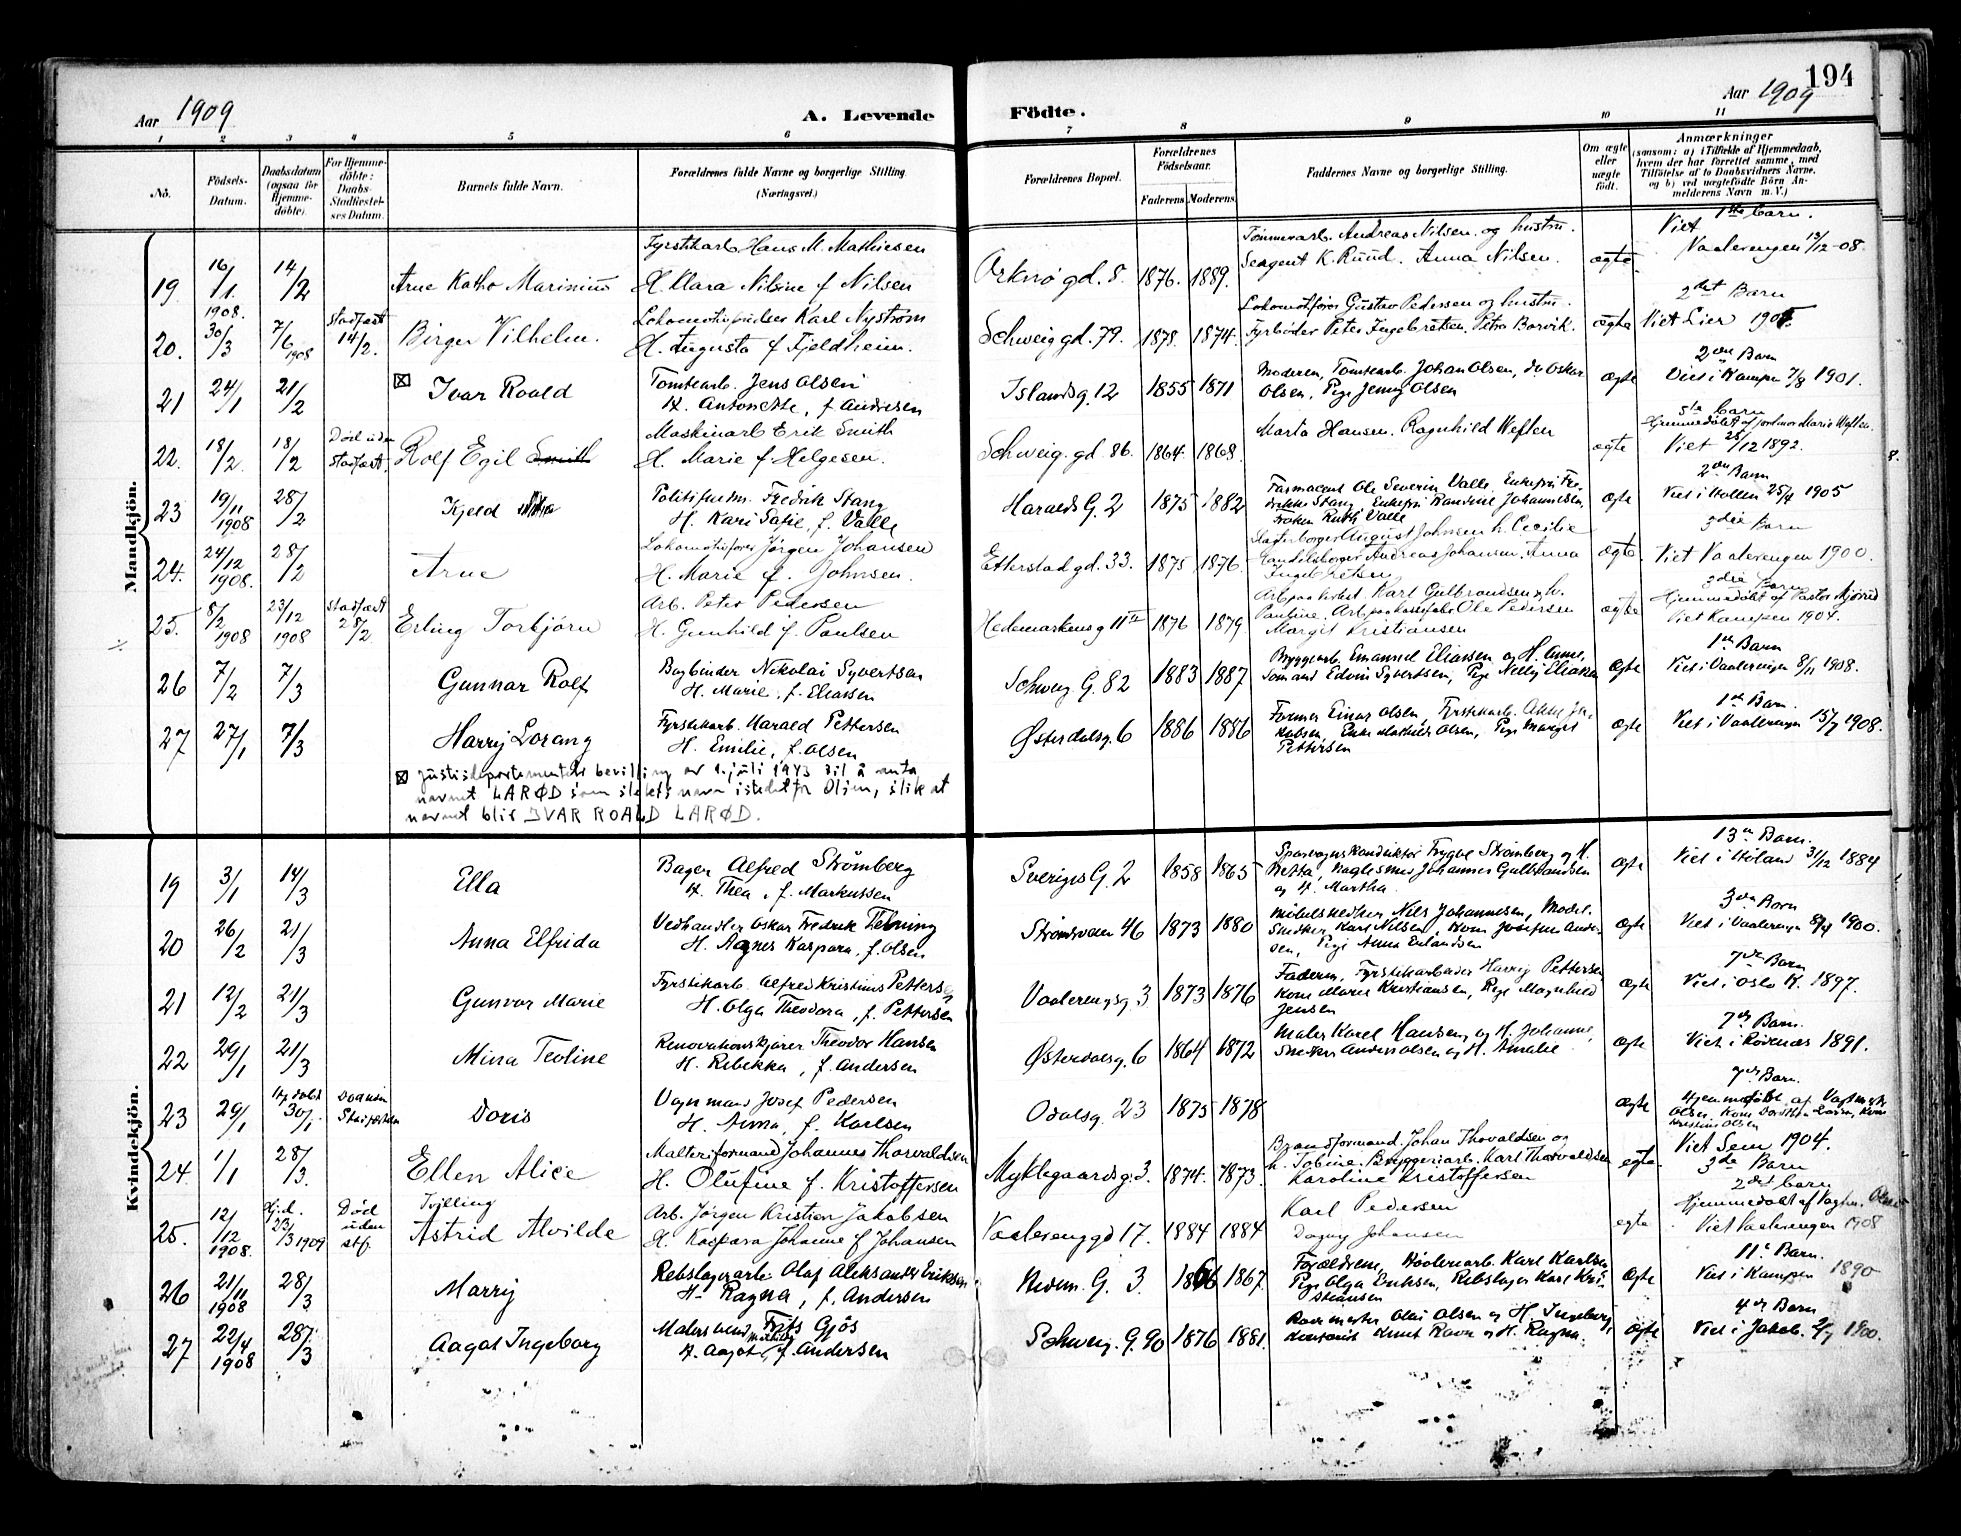 194
Aar 1909
A. Levende
Födte.
Aar 1909
1 2 3 4 5 6 7 8 9 10 11
No.
Födsels-Datum.
Daabsdatum (ogsaa for Hjemme-döbte).
For Hjemme-döbte: Daabs-Stadfæstel-ses Datum.
Barnets fulde Navn.
Forældrenes fulde Navne og borgerlige Stilling. (Næringsvei.)
Forældrenes Bopæl.
Forældrenes Födselsaar.
Faderens. Moderens.
Faddernes Navne og borgerlige Stilling.
Om ægte eller uægte födt.
Anmærkninger
(saasom: a) i Tilfælde af Hjemmedaab, hvem der har forrettet samme, med Tilföielse af to Daabsvidners Navne, og b) ved uægtefödte Börn An-melderens Navn m. V.)
Mandkjön.
19 16/1 14/2 Arne Katho Marinius
Fyrstikarb. Hans M. Mathiesen
H. Klara Nilsine f Nilsen
Orknø gd. 8. 1876. 1889.
Tømmerarb. Andreas Nilsen og hustru.
Sergent K. Ruud. Anna Nilsen.
ægte
1ste barn.
Viet Vaalerengen 13/12-08.
20. 1908. 30/3 7/6 1908 stadfæst 14/2. Birger Vilhelm.
Karl Nystrøm
H. Augusta f Fjeldheim.
Schweig gd. 79. 1878. 1874.
Lokomotivfører Gustav Pedersen og hustru.
Fyrbøder Peter Ingebretsen. Petra Borvik.
ægte
2det Barn
Viet Lier
21 24/1 21/2 Ivar Roald
Tomtearb. Jens Olsen
H. Antonette, f. Andresen
Islandsg. 12 1855 1871
Moderen, Tomtearb. Johan Olsen, do Oskar
Olsen, Pige Jenny Olsen
ægte
2det Barn
Viet i Kampen 7/8 1901.
22. 18/2. 18/2 Død uden stadfæst. Rolf Egil Smith
Maskinarb Erik Smith
H. Marie f. Helgesen.
Schweig. gd 86. 1864. 1868.
Marta Hansen. Ragnhild Weften
ægte
5te barn
Hjemmedøbt af Jordmor Marie Weften.
Viet 28/12 1892.
23 19/11 1908 28/2 Kjeld
Fredrik Stang
H. Kari Sofie, f. Valle
Haralds G. 2 1875 1882
Farmaceut Ole Severin Valle, Enkefru Fre-
drikke Stang, Enkefru Johannesen,
Frøken Ruth Valle
ægte
2det Barn
Viet i Hollen 25/4 1905
24. 24/12 1908. 28/2 Arne
Lokomotivfører Jørgen Johansen
H. Marie f. Johnsen.
Etterstad gd. 33. 1875 1876.
August Johnsen h. Cecilie
Andreas Johansen. Anna
Ingebretsen
ægte
3die Barn
Viet Vaalerengen 1900.
25. 8/2 1908 23/12 1908 stadfæst 28/2 Erling Torbjørn
Arb. Peter Pedersen
H. Gunhild f. Paulsen
Hedemarkens g 11 1876 1879
Karl Gulbrandsen
Pauline. Ole Pedersen
Margit Kristiansen
ægte
3die Barn
Hjemmedøbt af Pastor
Viet Kampen 1904.
26 7/2 7/3 Gunnar Rolf
Bogbinder Nikolai Syvertsen
H. Marie, f. Eliassen
Schweig. G. 82 1883 1887
Bryggearb. Emanuel Eliassen og H. Anne,
Sømand Edvin Syvertsen, Pige Nelly Eliassen
ægte
1ste Barn
Viet i Vaalerengen 8/11 1908.
27 27/1 7/3 Harry Lorang
Fyrstikarb. Harald Pettersen
H. Emilie, f. Olsen
Østerdalsg. 6 1886 1886
Former Einar Olsen, Fyrstikarb.
Enke Mathilde Olsen, Pige Margit
Pettersen
ægte
1ste Barn.
Viet i Vaalerengen 1908.
Justisdepartementets bevilling av 1. juli 1943 til å anta
navnet LARØD som slektsnavn istedetfor Olsen, slik at
navnet blir IVAR ROALD LARØD.
Kvindekjön.
19 3/1 14/3 Ella
Bager Alfred Strømberg
H. Thea, f. Markussen
Sveriges G. 2 1858 1865
Sporvognskonduktør Trygve Strømberg og H.
Netta, Naglesmed Johannes Gulbrandsen
og H. Martha
ægte
13de Barn.
Viet i Høland 31/12 1884
20 26/2 21/3 Anna Elfrida
Vedhandler Oskar Fredrik
H. Agnes Kaspara, f. Olsen
Strømsveien 46 1873 1880
Møbelsnedker Nils Johannesen, Model-
snedker Karl Nilsen, Kone Josefine Ander-
sen, Pige Anna Erlandsen
ægte
3die Barn
Viet i Vaalerengen 1900.
21 12/2 21/3 Gunvor Marie
Fyrstikarb. Alfred Kristinus Pettersen
H. Olga Theodora, f. Pettersen
Vaalerengsg. 3 1873 1876
Faderen, Fyrstikarbeider Harry Pettersen
Kone Marie Kristiansen, Pige Magnhild
Jensen
ægte
7de Barn
Viet i Oslo K. 1897.
22 29/1 21/3 Mina Teoline
Renovationskjører Theodor Hansen
H. Rebekka, f. Andersen
Østerdalsg. 6 1864 1872
Maler Karel Hansen, og H. Johanne,
Snekker Anders Olsen og H. Amalie
ægte
7de Barn.
Viet i Rødenæs 1891.
23 29/1 Hj. døbt 30/1. Død uden Stadfæstelse Doris
Vognmand Josef Pedersen
H. Anna, f. Karlsen
Odalsg. 23 1875 1878
ægte
7de Barn.
Hjemmedøbt af Vagtmester
Olsen, Kone Dorthea Larsen, Kone
Kristine Olsen
24. 1/1 28/3. Ellen Alice
Johannes Thorvaldsen
H. Olufine f. Kristoffersen
Myklegaardsg. 3. 1874. 1873.
Johan Thovaldsen og
h. Tobine. Bryggeriarb. Karl Thorvaldsen
Karoline Kristoffersen
egte.
Viet Sem 1904.
3de Barn
25. 12/12 1908. Hj.d. 23/3 1909 Død uden stf. Tvilling
Astrid Alvilde
Arb. Jørgen Kristian Jakobsen
H. Kaspara Johanne f Johansen
Vaalereng gd 17. 1884 1884
Karl Pedersen
Dagny Johansen
egte
2det barn
Hjemmedøbt af Olsen
Viet Vaalerengen 1908
26 21/11 1908 28/3 Marry
Rebslagerarb. Olaf Aleksander Eriksen
H. Ragna, f. Andersen
Nedem. G. 3. 1866 1867.
Forældrene, Karl Karlsen
Pige Olga Eriksen, Rebslager Karl Kri-
stiansen
ægte
11te Barn.
Viet i Kampen 1890
27 22/4 1908 28/3 Aagot Ingeborg
Malersvend Frits Gjøs
H. Aagot Mathilde, f. Andersen
Schweig. G. 90 1876 1881.
Olai Olsen og H. Ingeborg,
Kontorist Knut Ravn og H. Ragna.
ægte
4de Barn
Viet i Jakob. 1900.
8.